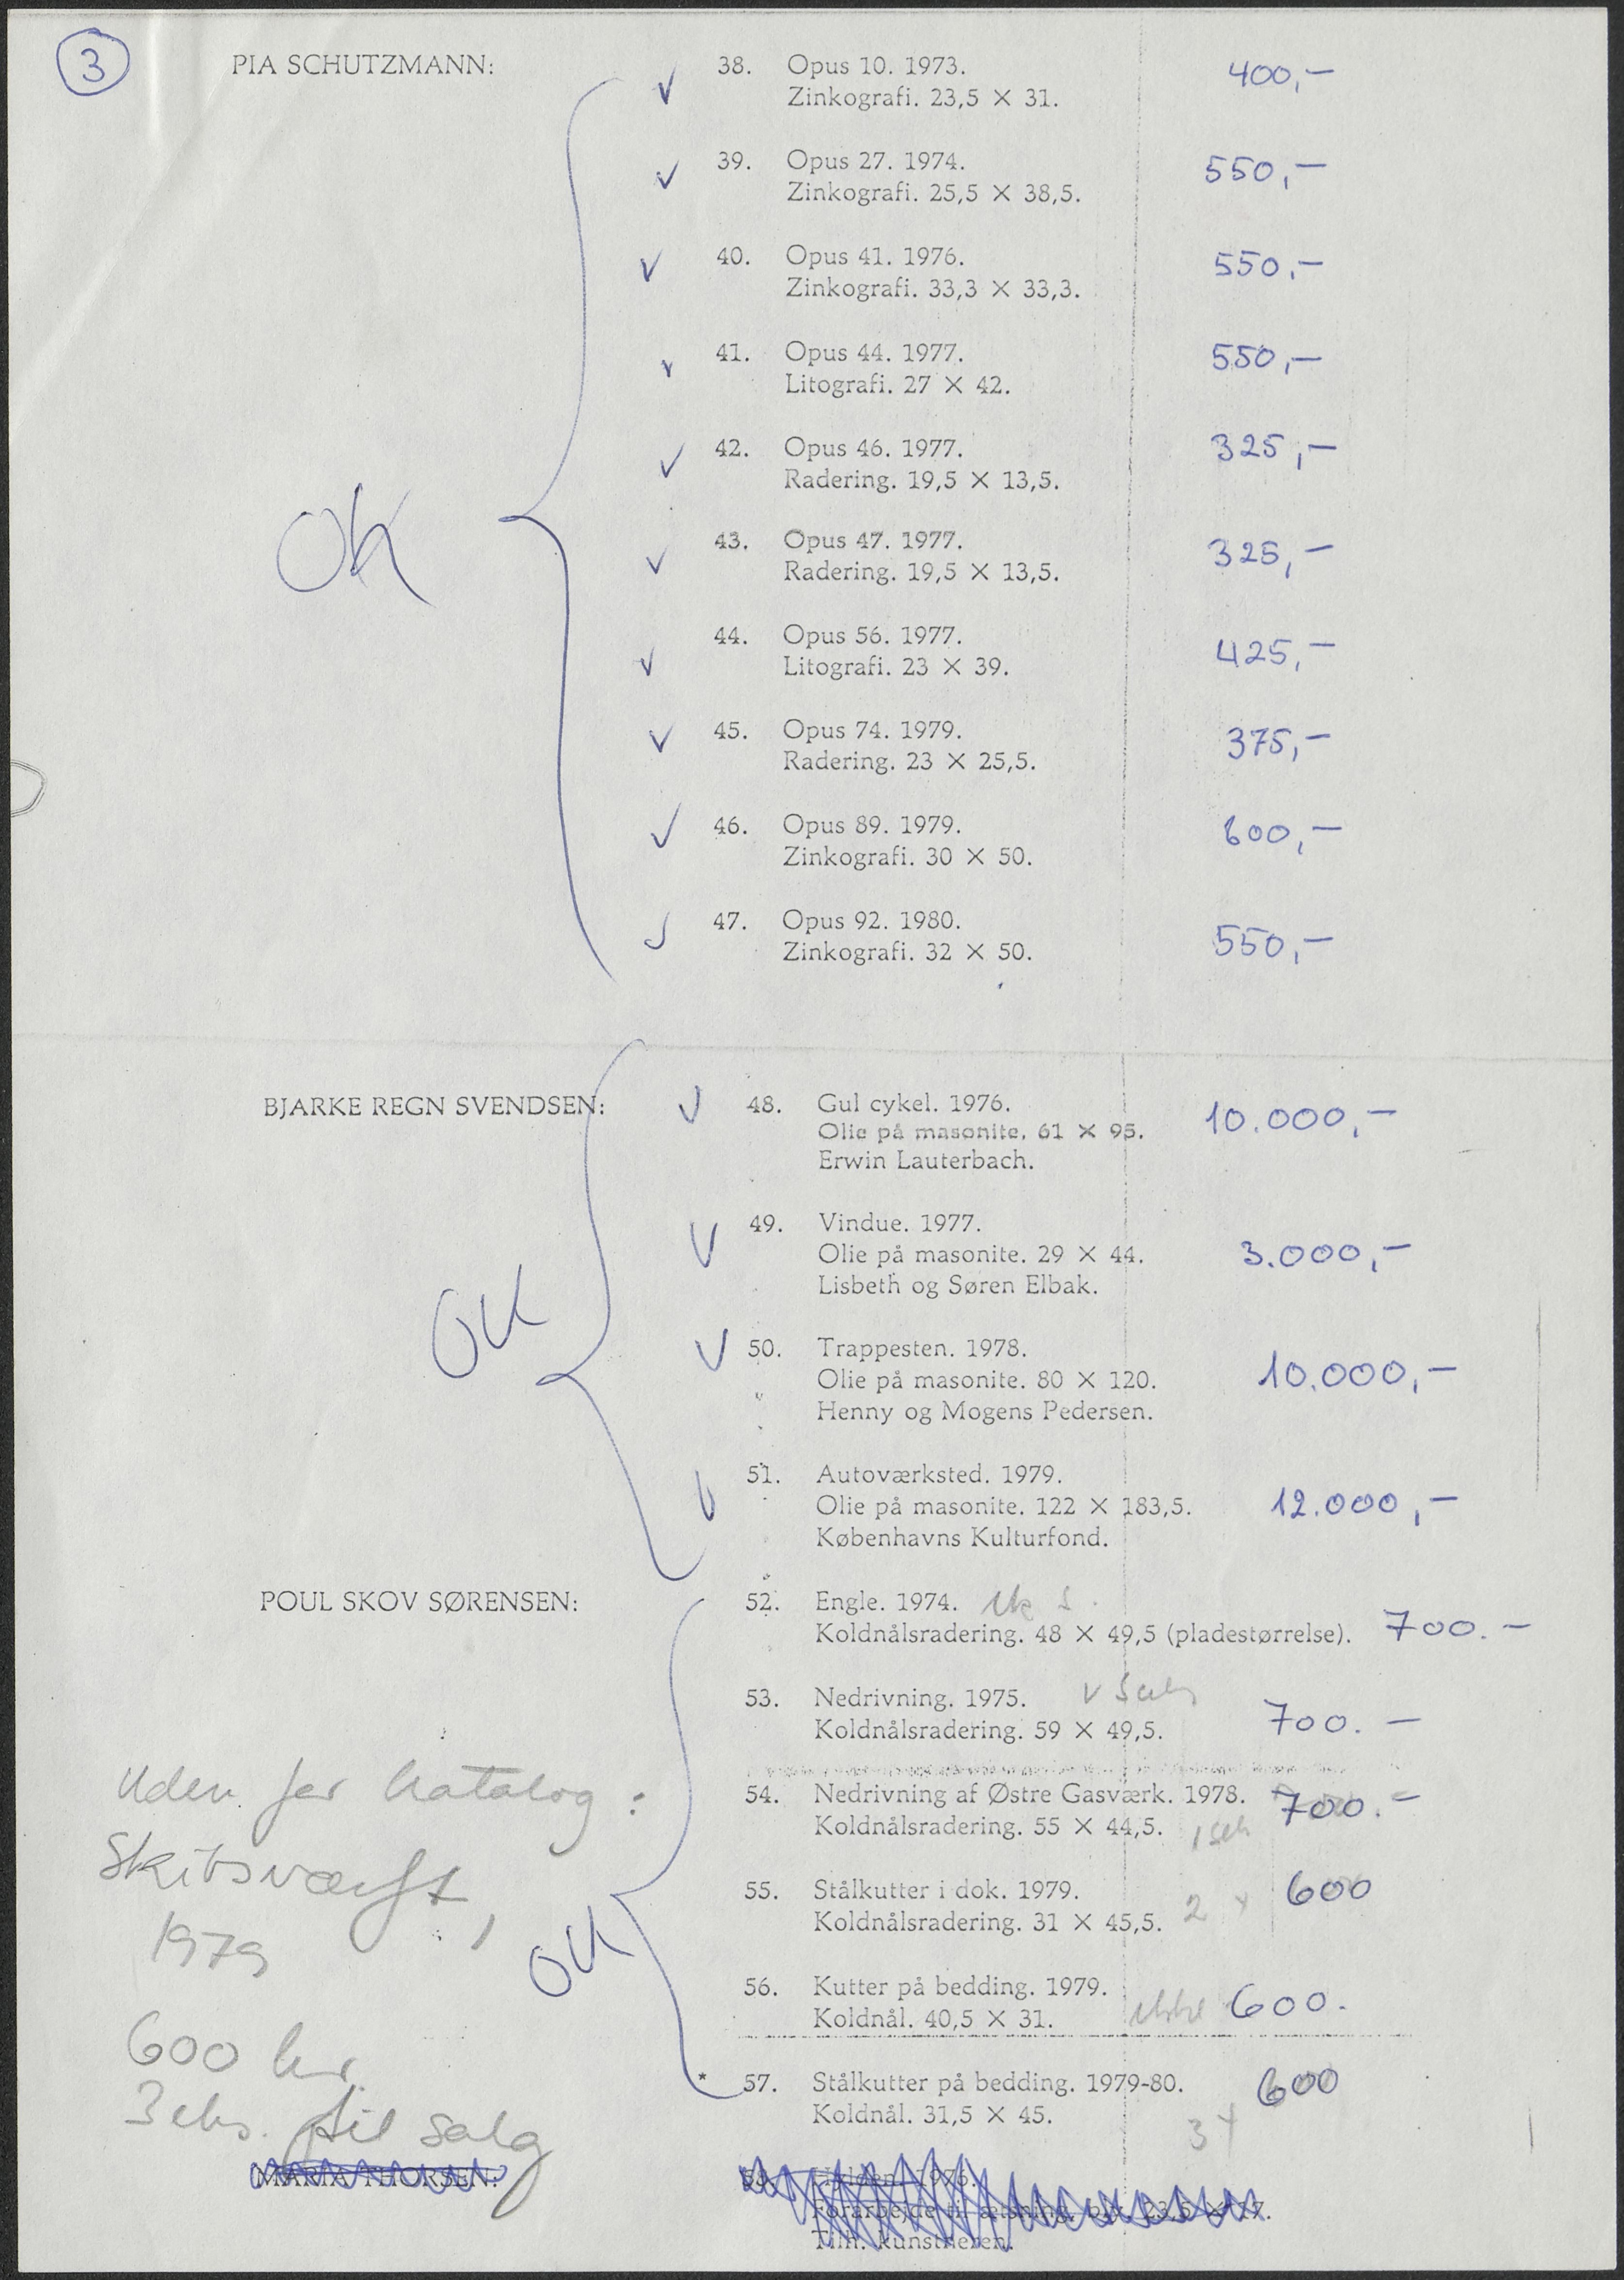 3
PIA SCHUTZMANN:
38. Opus 10. 1973. 400,-
Zinkografi. 23,5 × 31.
39. Opus 27. 1974. 550,-
Zinkografi. 25,5 × 38,5.
40. Opus 41. 1976. 550,-
Zinkografi. 33,3 × 33,3.
41. Opus 44. 1977. 550,-
Litografi. 27 × 42.
42. Opus 46. 1977. 325,-
Radering. 19,5 × 13,5.
OK
43. Opus 47. 1977. 325,-
Radering. 19,5 × 13,5.
44. Opus 56. 1977. 425,-
Litografi. 23 × 39.
45. Opus 74. 1979. 375,-
Radering. 23 × 25,5.
46. Opus 89. 1979. 600,-
Zinkografi. 30 × 50.
47. Opus 92. 1980. 550,-
Zinkografi. 32 × 50.
BJARKE REGN SVENDSEN:
48. Gul cykel. 1976. 10.000,-
Olie på masonite. 61 × 95.
Erwin Lauterbach.
49. Vindue. 1977.
Olie på masonite. 29 × 44. 3.000,-
Lisbeth og Søren Elbak.
OK
50. Trappesten. 1978.
Olie på masonite. 80 × 120. 10.000,-
Henny og Mogens Pedersen.
51. Autoværksted. 1979.
Olie på masonite. 122 × 183,5. 12.000,-
Københavns Kulturfond.
POUL SKOV SØRENSEN:
52. Engle. 1974.
Koldnålsradering. 48 × 49,5 (pladestørrelse). 700.-
53. Nedrivning. 1975.
Koldnålsradering. 59 × 49,5. 700.-
54. Nedrivning af Østre Gasværk. 1978. 700.-
Koldnålsradering. 55 × 44,5.
55. Stålkutter i dok. 1979. 600
Koldnålsradering. 31 × 45,5. 2
OK
56. Kutter på bedding. 1979.
Koldnål. 40,5 × 31. ikke 600.
* 57. Stålkutter på bedding. 1979-80. 600
Koldnål. 31,5 × 45. 3
Uden for katalog:
Skibsværft,
1979
600 kr.
3 eks. til salg
MARIA THORSEN:
58. 1976.
Forarbejde til ætsning. 23,5 × 17.
Tilh. kunstneren.